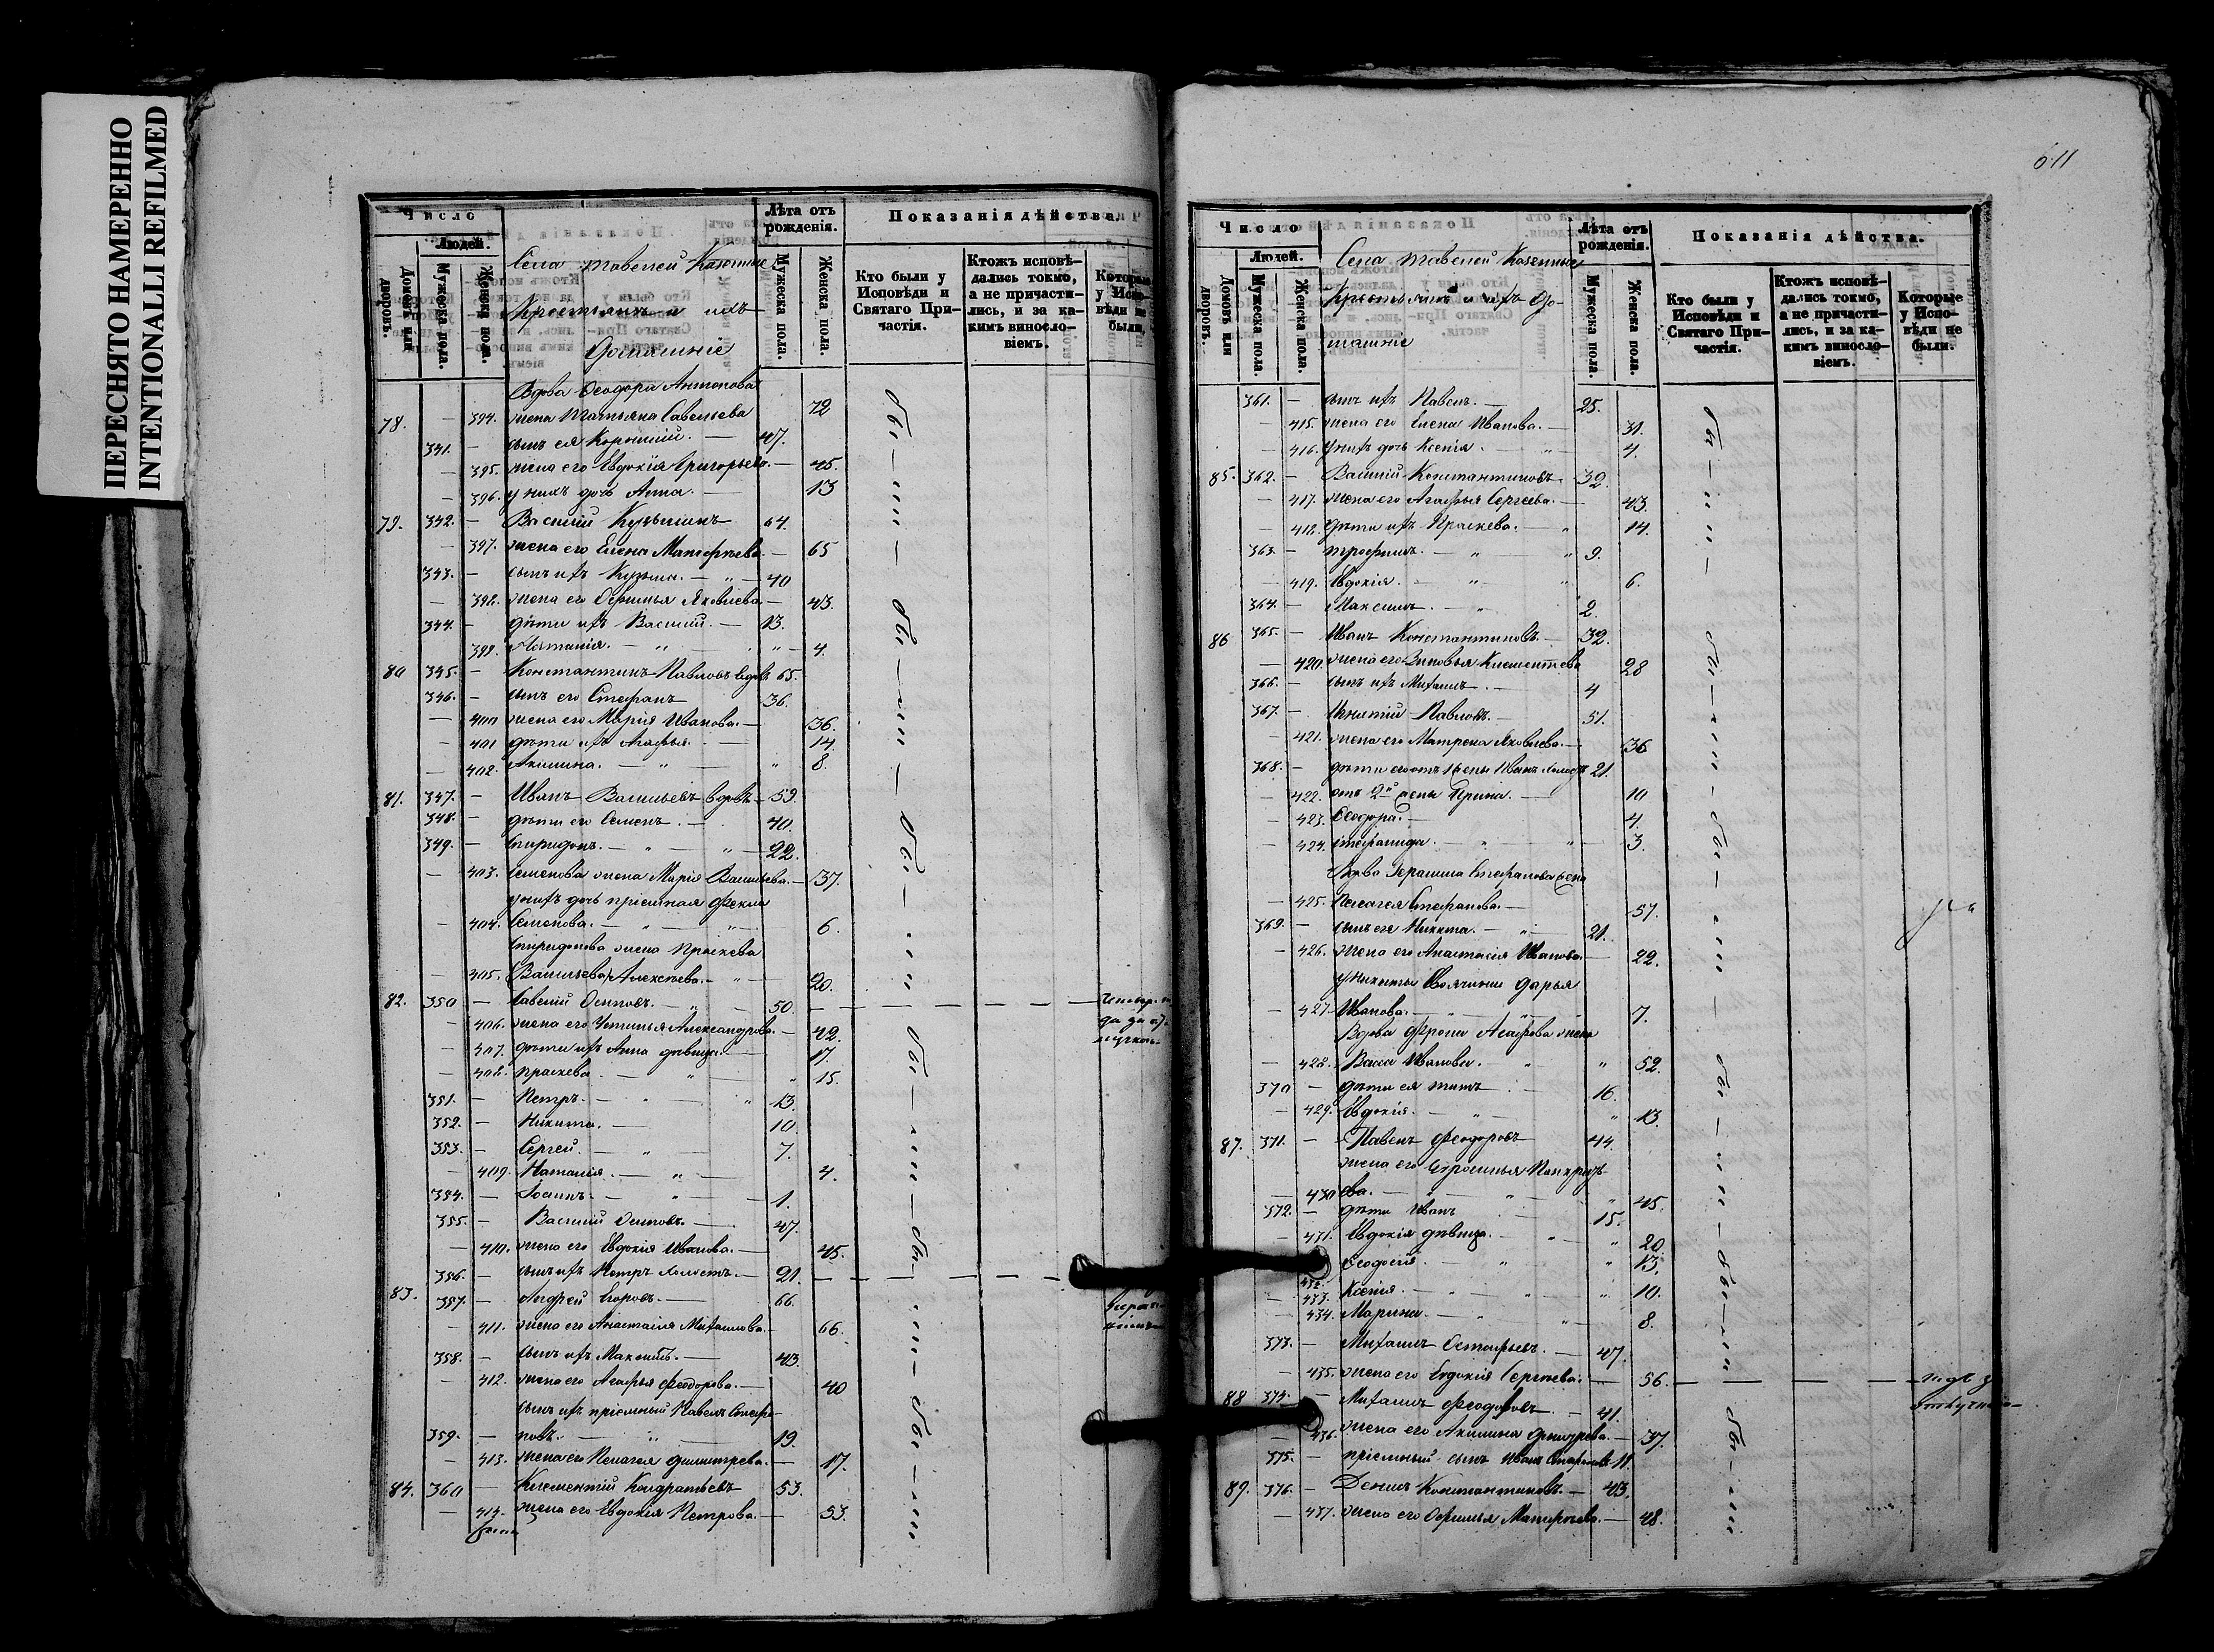 ПЕРЕСНЯТО НАМЕРЕННО
INTENTIONALLI REFILMED
Число
Людей.
Домовъ или дворовъ.
Мужеска пола.
Женска пола.
Села Тавелей Казенные
Крестьянъ и ихъ
домашніе
Лѣта отъ рожденія.
Мужеска пола.
Женска пола.
Показанія дѣйства.
Кто были у Исповѣди и Святаго При-частія.
Ктожъ исповѣ-дались токмо, а не причасти-лись, и за ка-кимъ виносло-віемъ.
Вдова Ѳеодора Антонова
78. — 394. жена Татьяна Савельева 72
341. — сынъ ея Корнилій. — 47.
— 395. жена его Евдокія Григорьева. — 45.
— 396. у нихъ дочь Анна. — 13
79. 342. — Василій Кузьминъ 64.
— 397. жена его Елена Матѳѣева. — 65
343. — сынъ ихъ Кузьма. — " — 40
— 398. жена его Ѳфимья Яковлева. — 43.
344. — дѣти ихъ Василій. — 13.
399. Наталія. — " — " — 4.
80 345. — Константинъ Павловъ вдовъ 65.
346. — сынъ его Стефанъ 36.
— 400 жена его Марія Иванова. — 36.
— 401 дѣти ихъ Агафья. — 14.
— 402. Акилина. — " — " 8.
81. 347. — Иванъ Васильевъ вдовъ — 59.
348. — дѣти его Семенъ. — 40.
349. — Спиридонъ. — " — " — 22.
— 403. Семенова жена Марія Васильева. — 37.
у нихъ дочь пріемная Ѳекла
— 404. Семенова. — " — " — 6.
Спиридонова жена Праскева
— 405. Васильева/Алексѣева. — " — 20.
82. 350 — Савелій Осиповъ. — " — 50. —
— 406. жена его Устинья Александрова. — 42.
— 407. дѣти ихъ Анна дѣвица. — 17
— 408. Праскева. — " — " 15.
351. — Петръ. — " — " 13.
352. — Никита. — 10.
353. — Сергей. — " — 7.
— 409. Наталія. — " — 4.
354. — Іоаннъ. — " — 1.
355. — Василій Осиповъ. — 47.
— 410. жена его Евдокія Иванова. — 45.
356. — сынъ ихъ Петръ холостъ. — 21. —
83. 357. — Андрей Егоровъ. — 66.
— 411. жена его Анастасія Михаилова. — 66.
358. — сынъ ихъ Максимъ. — 43.
— 412. жена его Агафья Ѳеодорова. — 40
сынъ ихъ пріемный Павелъ Стефа-
359. — новъ. — " — 19.
— 413. жена его Пелагея Димитрева. — 17.
84. 360 — Климентій Кондратьевъ 53.
— 414. жена его Евдокія Петрова. — 53.
611
Число
Людей.
Домовъ или дворовъ.
Мужеска пола.
Женска пола.
Села Тавелей Казенные
Крестьянъ и ихъ до-
машніе
Лѣта отъ рожденія.
Мужеска пола.
Женска пола.
Показанія дѣйства.
Кто были у Исповѣди и Святаго При-частія.
Ктожъ исповѣ-дались токмо, а не причасти-лись, и за ка-кимъ виносло-віемъ.
Которые у Испо-вѣди не были.
361. — сынъ ихъ Павелъ. — 25.
— 415. жена его Елена Иванова. — 31.
— 416. у нихъ дочь Ксенія. — " 4.
85. 362. — Василій Константиновъ 32.
— 417. жена его Агафья Сергеева. — 43.
— 418. дѣти ихъ Праскева. — " 14.
363. — Трофимъ. — " — " 9.
— 419. Евдокія. — " — " 6.
364. — Максимъ. — " 2.
86 365. — Иванъ Константиновъ. — 32.
— 420. жена его Зиновья Клементева 28
366. — сынъ ихъ Михаилъ. — 4
367. — Игнатій Павловъ. — 51.
— 421. жена его Матрена Яковлева. — 36
368. — дѣти его отъ 1 жены Иванъ холостъ 21.
— 422. отъ 2й жены Ирина. — 10
— 423. Ѳеодора. — 4.
— 424. Стефанида. — " — " 3.
Вдова Герасима Стефанова жена
— 425. Пелагея Стефанова. — 57.
369. — сынъ ея Никита. — " — 21.
— 426. жена его Анастасія Иванова. — 22.
у Никиты своячина Дарья
— 427. Иванова. — " — " — 7.
Вдова Фрола Агафова жена
— 428. Васса Иванова. — " " 52.
370 — дѣти ея Титъ — 16.
— 429. Евдокія. — " — " 13.
87. 371. — Павелъ Ѳеодоровъ 44.
— 430 ева. — " — " — " 45.
372. — дѣти Иванъ — 15.
— 431. Евдокія дѣвица. — " — " 20.
432. Ѳеодосія. — " — " 13.
— 433. Ксенія. — " — " — " 10.
— 434. Марина. — " — " 8.
373. — Михаилъ Остафьевъ. — 47.
— 435. жена его Евдокія Сергѣева. — 56. —
88 374. — Михаилъ Ѳеодоровъ. — 41.
— 436. жена его Акилина Дмитрева. — 37.
375. — пріемный сынъ Иванъ 11.
89. 376. — Денисъ Константиновъ. — 43.
— 437. жена его Ѳфимья Матѳѣева. — 48.